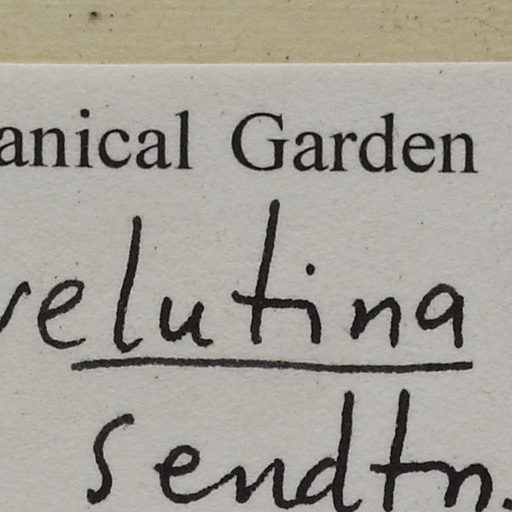 anical Garden
velutina
Sendtn.